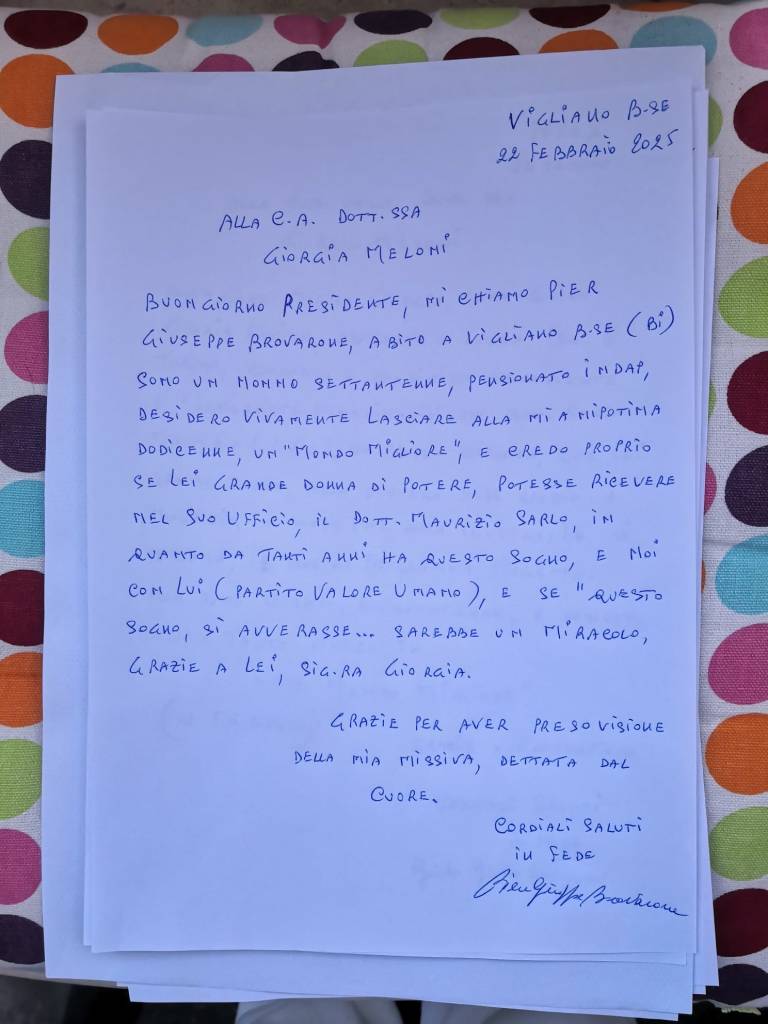 VIGLIANO B.SE
22 FEBBRAIO 2025
ALLA C.A. DOTT.SSA
GIORGIA MELONI
BUONGIORNO PRESIDENTE, MI CHIAMO PIER
GIUSEPPE BROVARONE, ABITO A VIGLIANO B.SE (BI)
SONO UN NONNO SETTANTENNE, PENSIONATO INDAP,
DESIDERO VIVAMENTE LASCIARE ALLA MIA NIPOTINA
DODICENNE, UN "MONDO MIGLIORE", E CREDO PROPRIO
SE LEI GRANDE DONNA DI POTERE, POTESSE RICEVERE
NEL SUO UFFICIO, IL DOTT. MAURIZIO SARLO, IN
QUANTO DA TANTI ANNI HA QUESTO SOGNO, E NOI
CON LUI (PARTITO VALORE UMANO), E SE "QUESTO
SOGNO, SI AVVERASSE... SAREBBE UN MIRACOLO,
GRAZIE A LEI, SIG.RA GIORGIA.
GRAZIE PER AVER PRESO VISIONE
DELLA MIA MISSIVA, DETTATA DAL
CUORE.
CORDIALI SALUTI
IN FEDE
Pier Giuseppe Brovarone